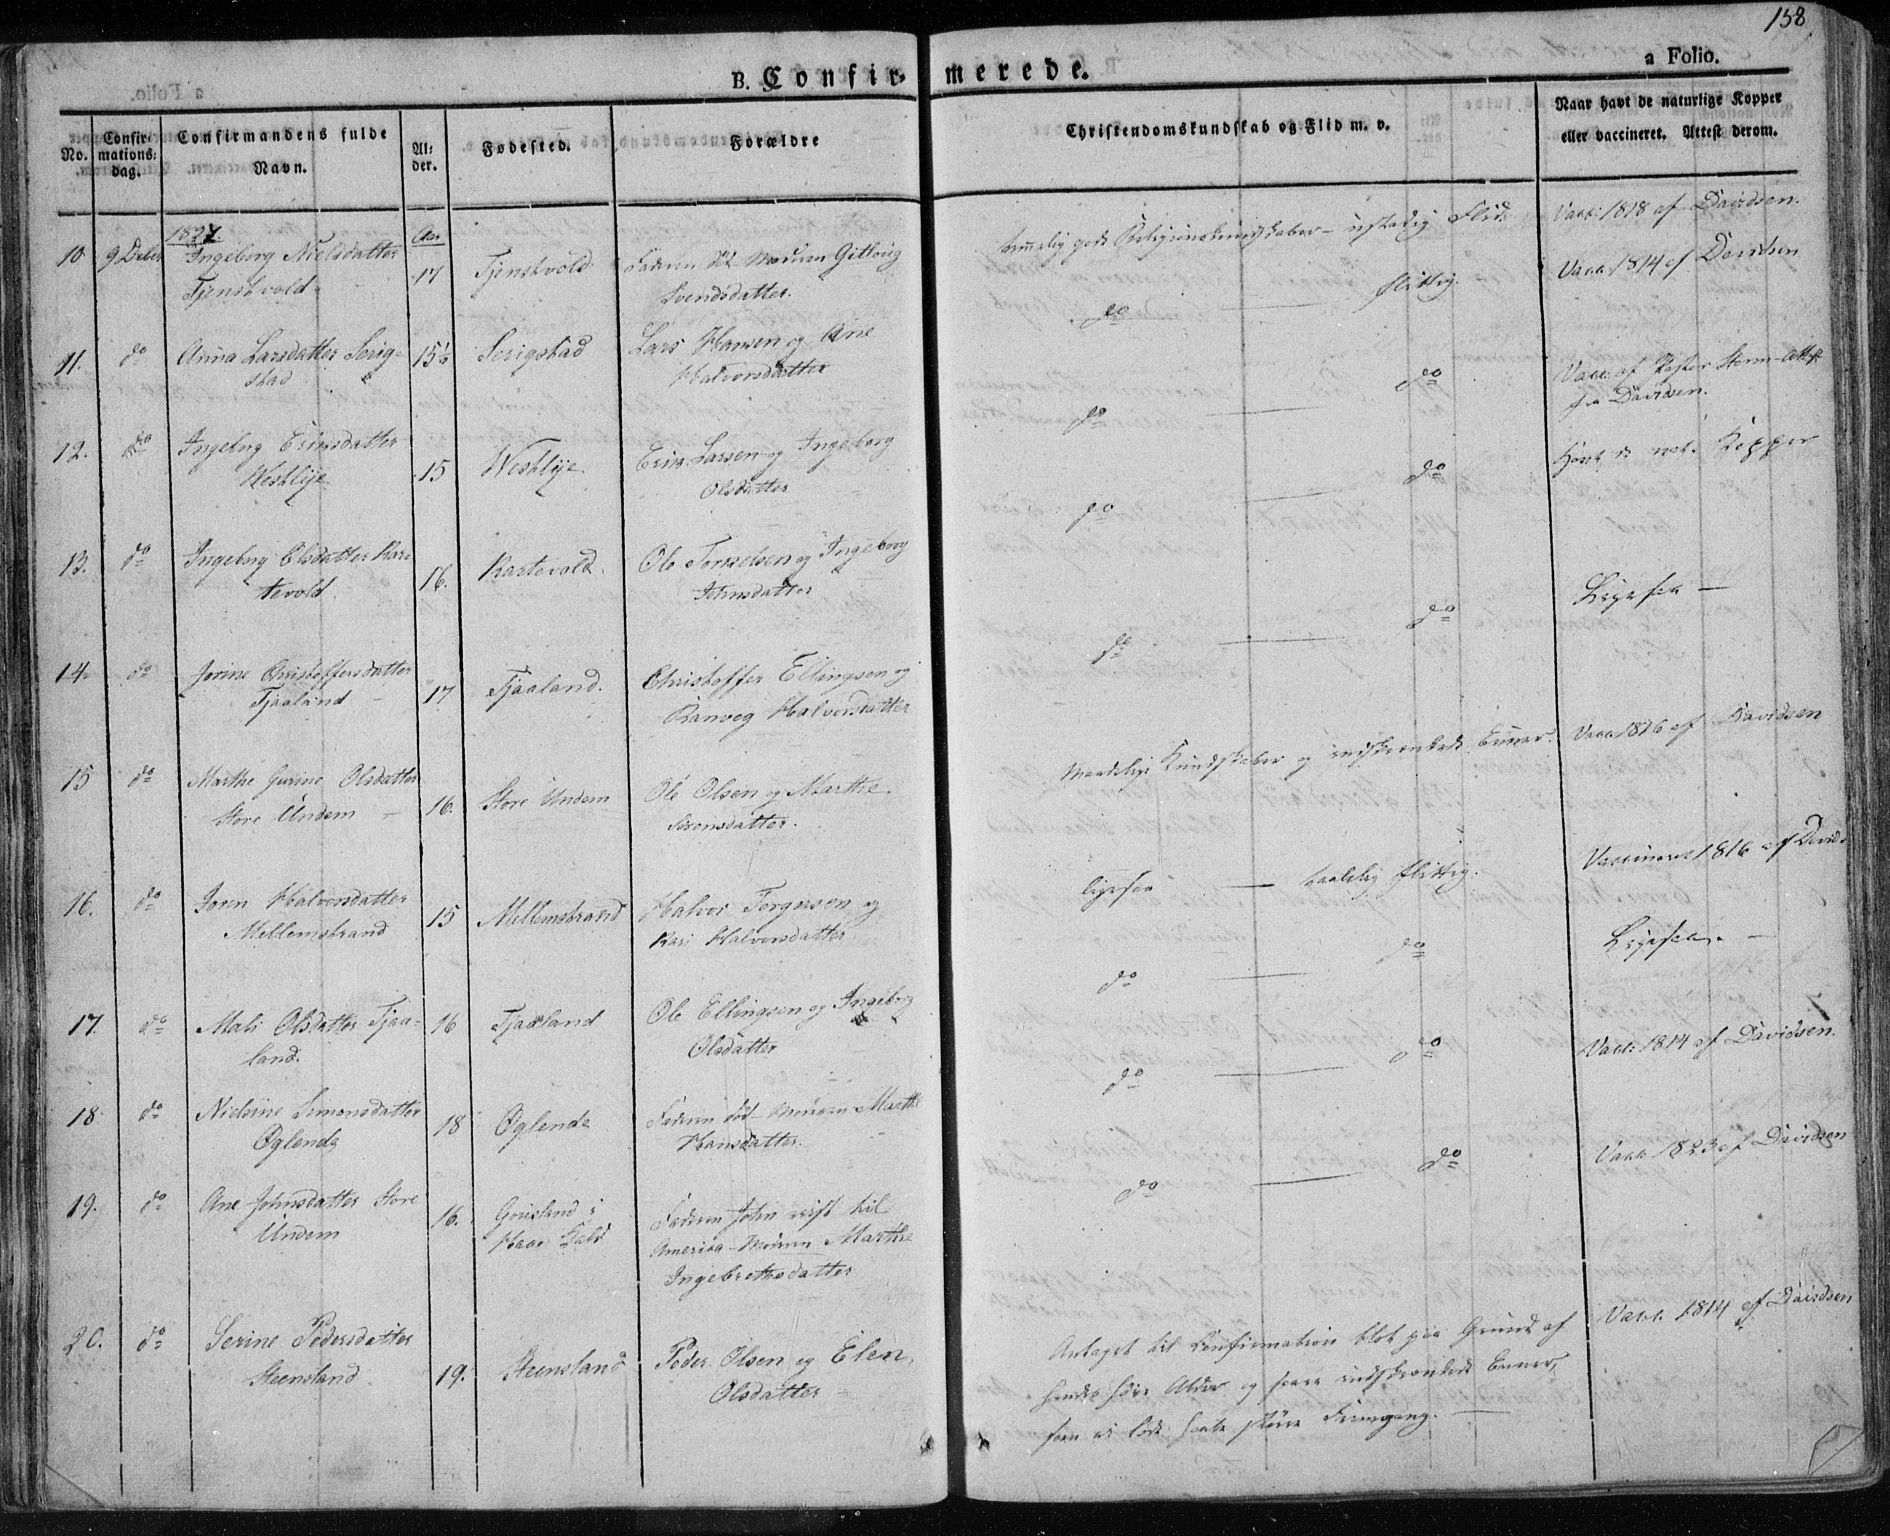 158
B. Confirmerede.
a Folio.
No.
Confirmations: dag.
Confirmandens fulde Navn.
Alder.
Fødested.
Forældre
Christendomskundskab og Flid m. v.
Naar havt de naturlige Kopper
eller vaccineret. Attest derom.
1827.
Aar
10 9 Decbr Ingeborg Nielsdatter
Tjenstvold
17 Tjenstvold Faderen død Moderen Gitlaug
Svendsdatter.
temmelig gode Religionskundskaber – ustadig Flid.
Vacc: 1818 af Davidsen.
11. do Anna Larsdatter Serig-
stad
15½ Serigstad Lars Hansen og Ane
Halvorsdatter
do — flittig.
Vacc. 1814 af Davidsen
12. do Ingeborg Ericsdatter
Westlye
15 Westlye Eric Larsen og Ingeborg
Olsdatter
do — do
Vacc: af Præster Attest
fra Davidsen.
13. do Ingeborg Olsdatter Kar-
tevold
16. Kartevold. Ole Terkelsen og Ingeborg
Johnsdatter
do — do
Havt de nat. Kopper
14. do Jorine Christoffersdatter
Tjaaland
17 Tjaaland. Christoffer Ellingsen og
Ranveg Halvorsdatter
do — do
Ligesaa —
15 do Marthe Gurine Olsdatter
Store Undem
16. Store Undem Ole Olsen og Marthe
Sørensdatter.
Maadelige Kundskaber og indskrænkede Evner.
Vacc 1816 af Davidsen
16. do Joren Halvorsdatter
Mellemstrand
15 Mellemstrand Halvor Torgersen og
Kari Halvorsdatter
ligesaa — taalelig flittig.
Vaccineret 1816 af Davids
17. do Mali Olsdatter Tjaa-
land.
16 Tjaaland Ole Ellingsen og Ingeborg
Olsdatter
do — do
Ligesaa. —
18 do Nielsine Simonsdatter
Øglende
18 Øglende Faderen død Moderen Marthe
Hansdatter.
do — do
Vacc: 1814 af Davidsen.
19. do Ane Johnsdatter Store
Undem
16. i
Faderen John reist til
America – Moderen Marthe
Ingebretsdatter
do — do
Vacc 1823 af Davidsen
20. do Serine Pedersdatter
Steensland
19. Steensland Peder Olsen og Elen
Olsdatter
Antaget til Confirmation blot paa Grund af
hendes høie Alder og svare indskrænkede Evner,
som ei lode haabe større Fremgang. —
Vacc. 1814 af Davidsen